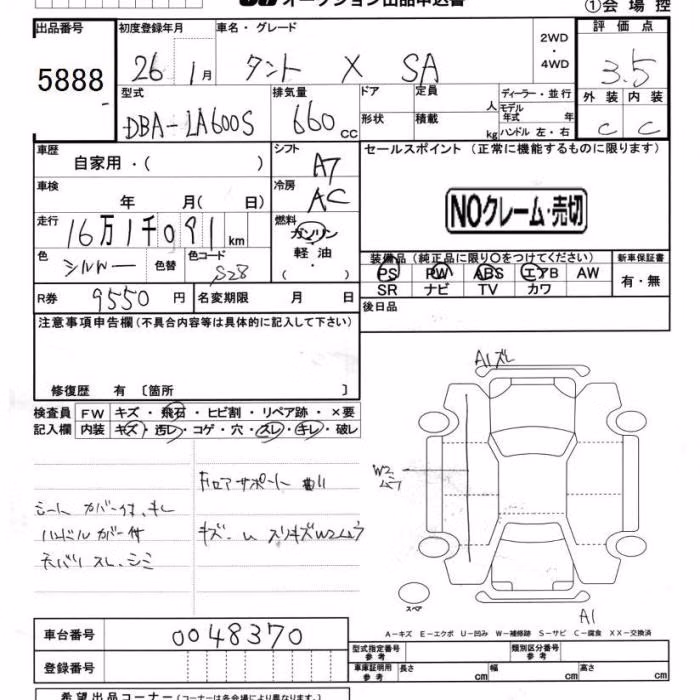 オークション出品申込書 ①会場控
出品番号 初度登録年月 車名・グレード 評価点
5888 26 1月 タント X SA 2WD・4WD 3.5
型式 排気量 ドア 定員 人 ディーラー・並行 外装 内装
DBA-LA600S 660cc 形状 積載 kg モデル年式 年 C C
ハンドル 左・右
車歴 自家用・( ) シフト AT セールスポイント(正常に機能するものに限ります)
車検 年 月(日) 冷房 AC NOクレーム・売切
走行 16万1千091km 燃料 ガソリン
軽油
(・)
色 シルバー 色替 色コード S28 装備品(純正品に限り○をつけてください) 新車保証書
PS PW ABS エアB AW 有・無
SR ナビ TV カワ
R券 9550円 名変期限 月 日 後日品
注意事項申告欄(不具合内容等は具体的に記入して下さい)
修復歴 有〔箇所 〕
検査員 FW キズ・飛石・ヒビ割・リペア跡・×要
記入欄 内装 キズ・汚レ・コゲ・穴・スレ・キレ・破レ
A1ズレ
W2
ムラ
フロアサポート 曲り
シート カバー付、キレ
ハンドル カバー付
キズ・凹 スリキズW2ムラ
天バリ スレ、シミ
スペア
A1
A-キズ E-エクボ U-凹み W-補修跡 S-サビ C-腐食 XX-交換済
車台番号 0048370 型式指定番号 参考 類別区分番号 参考
登録番号 車庫証明用 参考 長さ cm 幅 cm 高さ cm
希望出品コーナー(コーナーは各会場により異なります。)